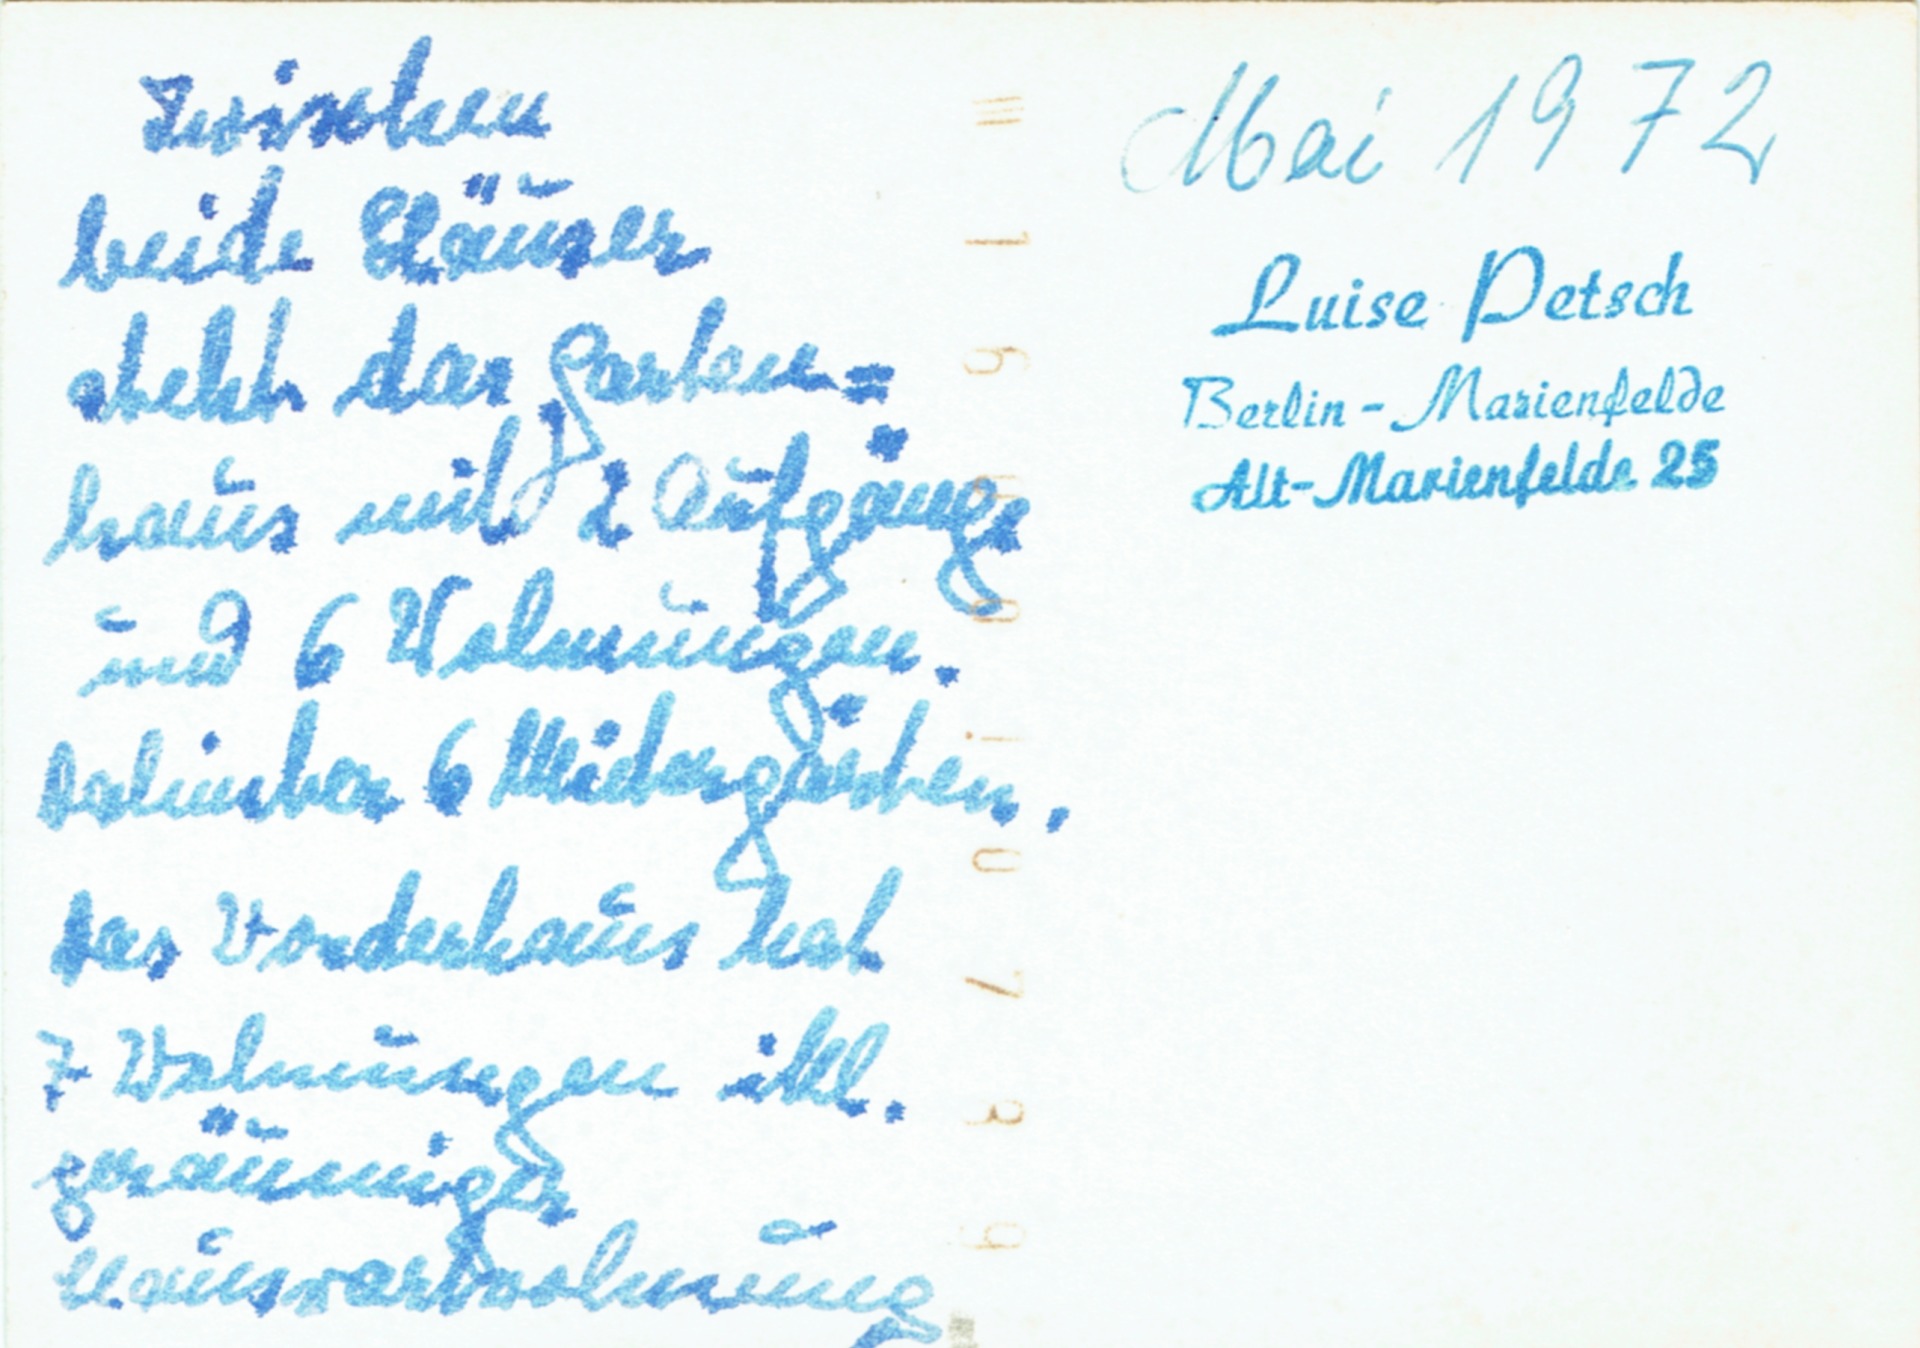 Zwischen
beide Häuser
steht das Garten=
haus mit 2 Aufgänge
und 6 Wohnungen.
Dahinter 6 Mietergärten.
Das Vorderhaus hat
7 Wohnungen ikl.
geräumiger
Hauswartwohnung
Mai 1972
Luise Petsch
Berlin - Marienfelde
Alt-Marienfelde 25